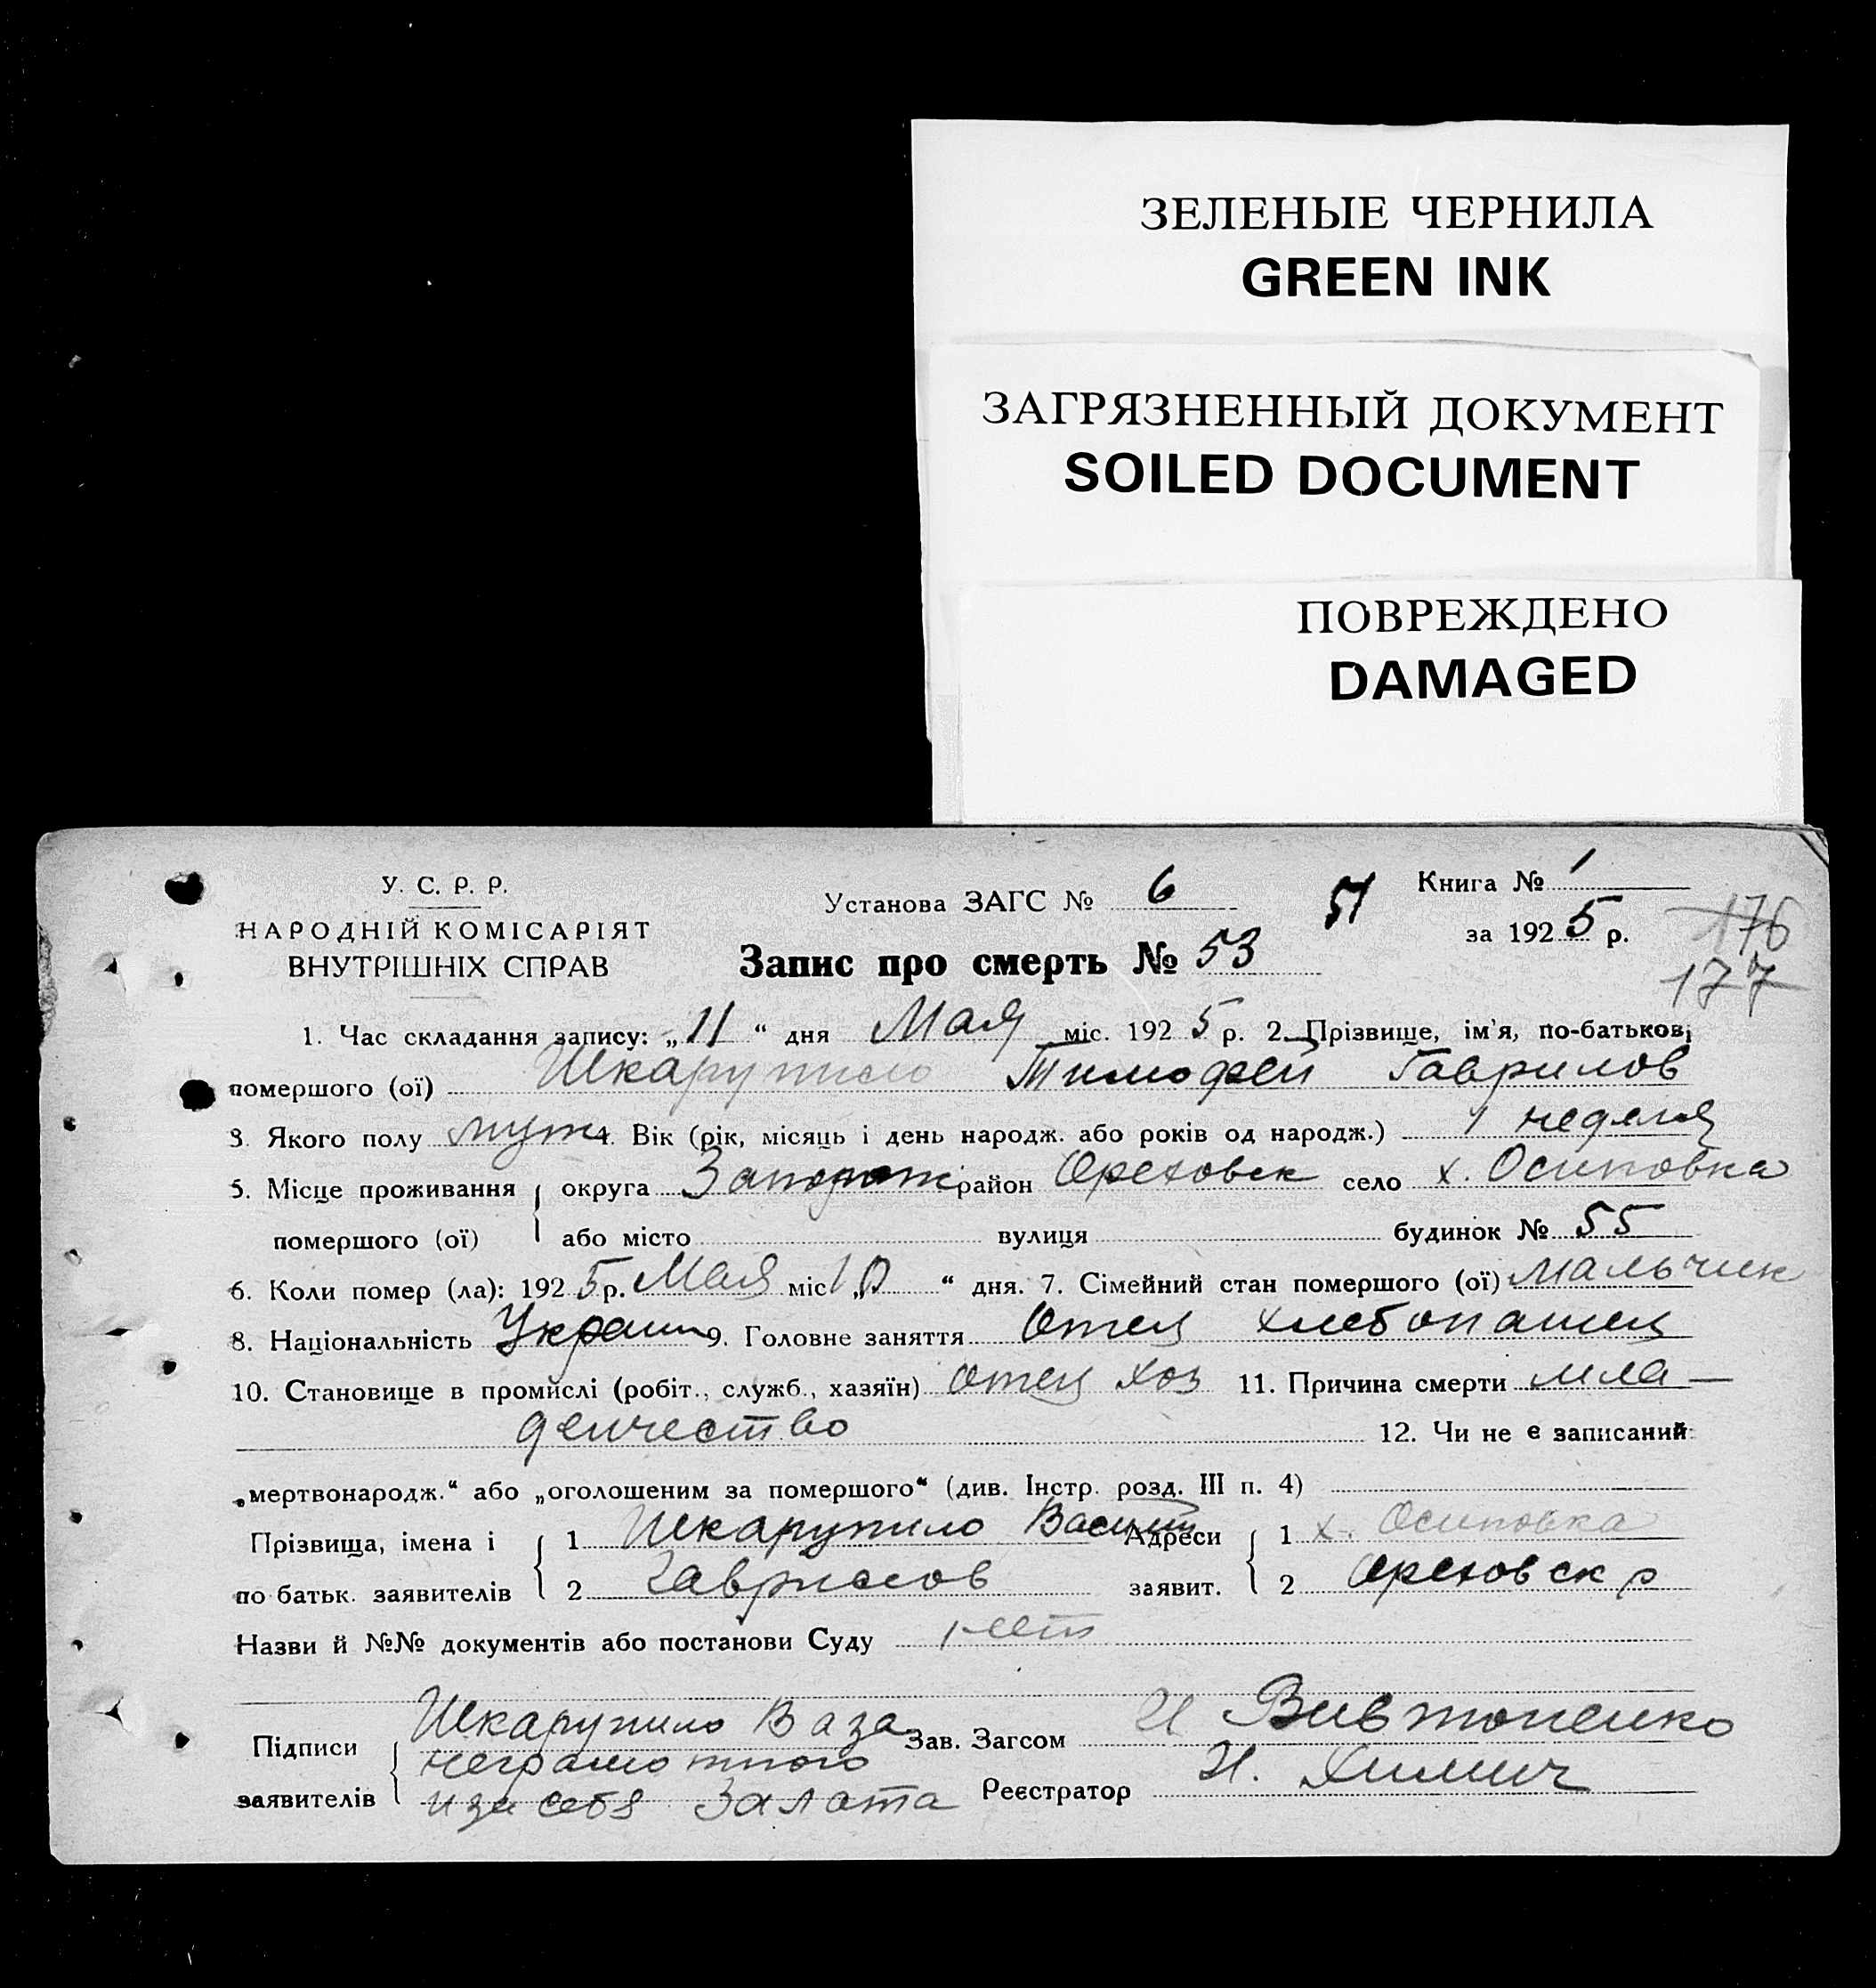 ЗЕЛЕНЫЕ ЧЕРНИЛА
GREEN INK
ЗАГРЯЗНЕННЫЙ ДОКУМЕНТ
SOILED DOCUMENT
ПОВРЕЖДЕНО
DAMAGED
У. С. Р. Р.
НАРОДНІЙ КОМІСАРІЯТ
ВНУТРІШНІХ СПРАВ
Установа ЗАГС № 6
51
Запис про смерть № 53
Книга № 1
за 1925 р.
176
177
1. Час складання запису: „11“ дня Мая міс. 1925 р. 2. Прізвище, ім'я, по-батькові
помершого (ої) Шкарупило Тимофей Гаврилов
3. Якого полу муж 4. Вік (рік, місяць і день народж. або років од народж.) 1 неделя
5. Місце проживання округа Запорож район Ореховск село х. Осиповка
помершого (ої) або місто вулиця будинок № 55
6. Коли помер (ла): 1925 р. Мая міс „10“ дня. 7. Сімейний стан помершого (ої) мальчик
8. Національність Украин 9. Головне заняття Отец хлебопашец
10. Становище в промислі (робіт., служб., хазяїн) отец хоз 11. Причина смерти мла-
денчество 12. Чи не є записаний
„мертвонародж.“ або „оголошеним за помершого“ (див. Інстр. розд. III п. 4)
Прізвища, імена і 1 Шкарупило Василий Адреси 1 х. Осиповка
по батьк. заявителів 2 Гаврилов заявит. 2 Ореховск р
Назви й №№ документів або постанови Суду нет
Підписи Шкарупило В а за Зав. Загсом И Вивтоненко
неграмотного
заявителів и за себя Залата Реєстратор И. Химич